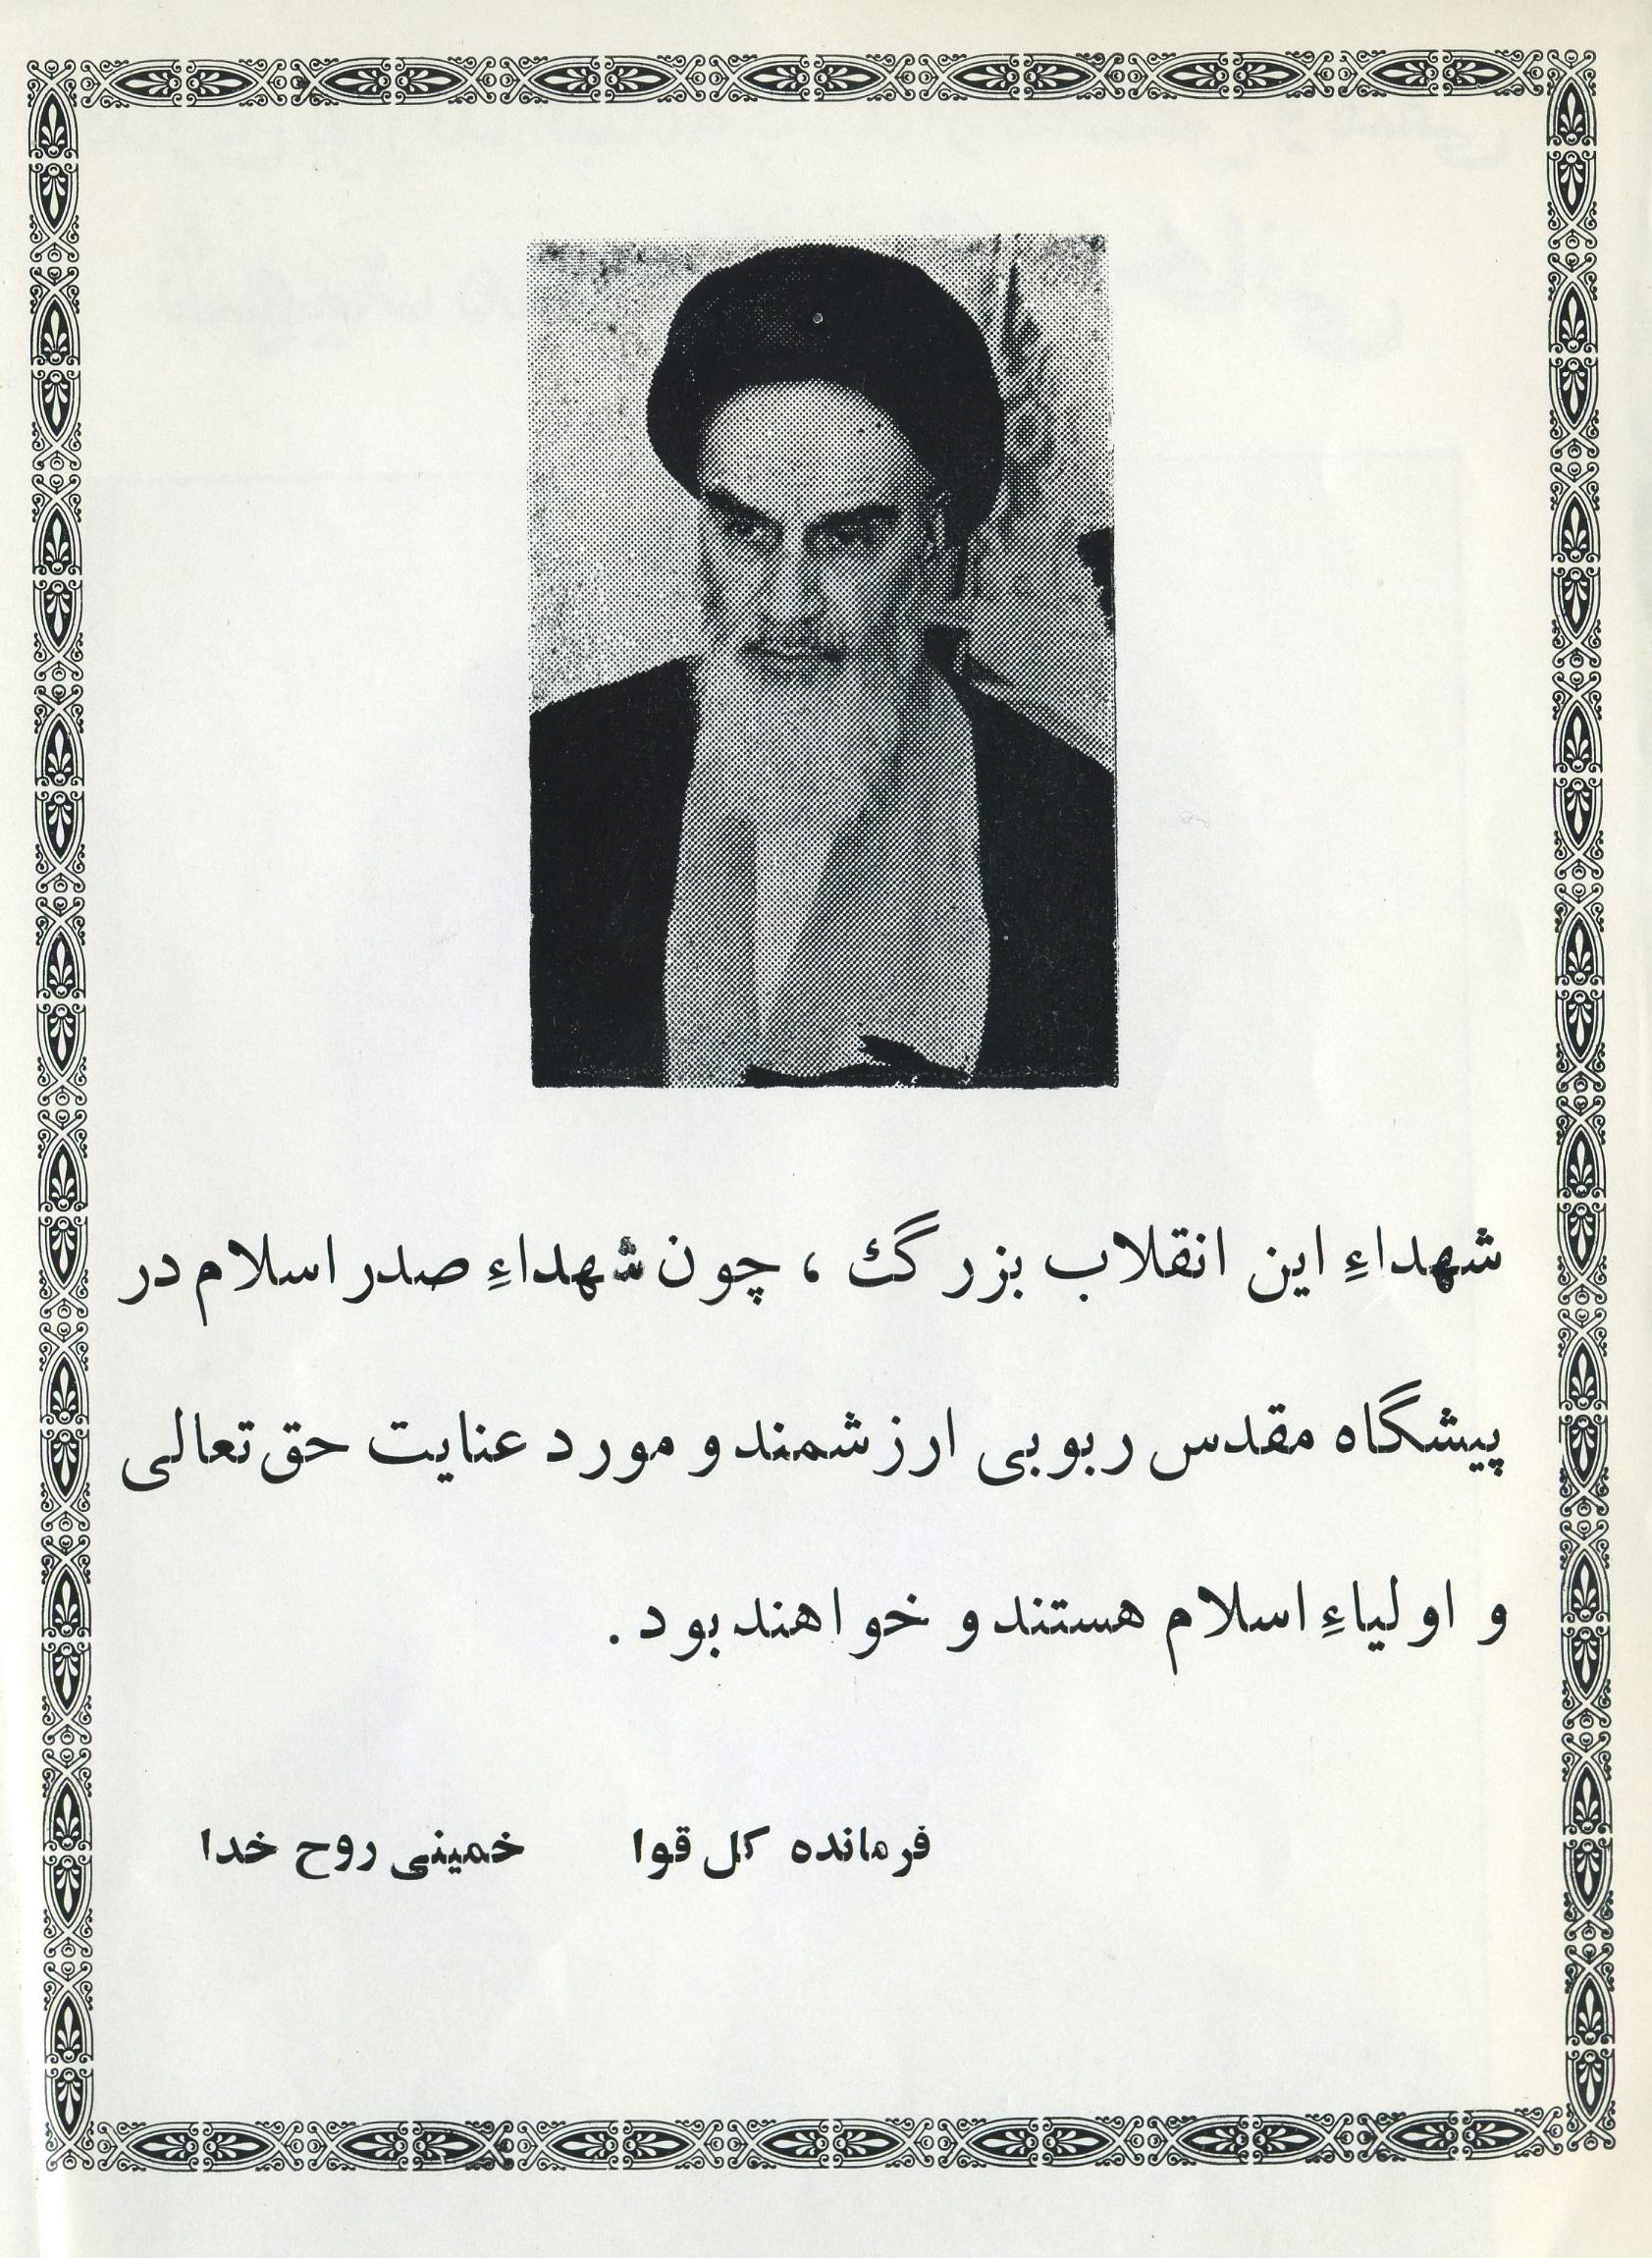 شهداءِ این انقلاب بزرگ ، چون شهداءِ صدر اسلام در
پیشگاه مقدس ربوبی ارزشمند و مورد عنایت حق تعالی
و اولیاءِ اسلام هستند و خواهند بود .
فرمانده کل قوا خمینی روح خدا